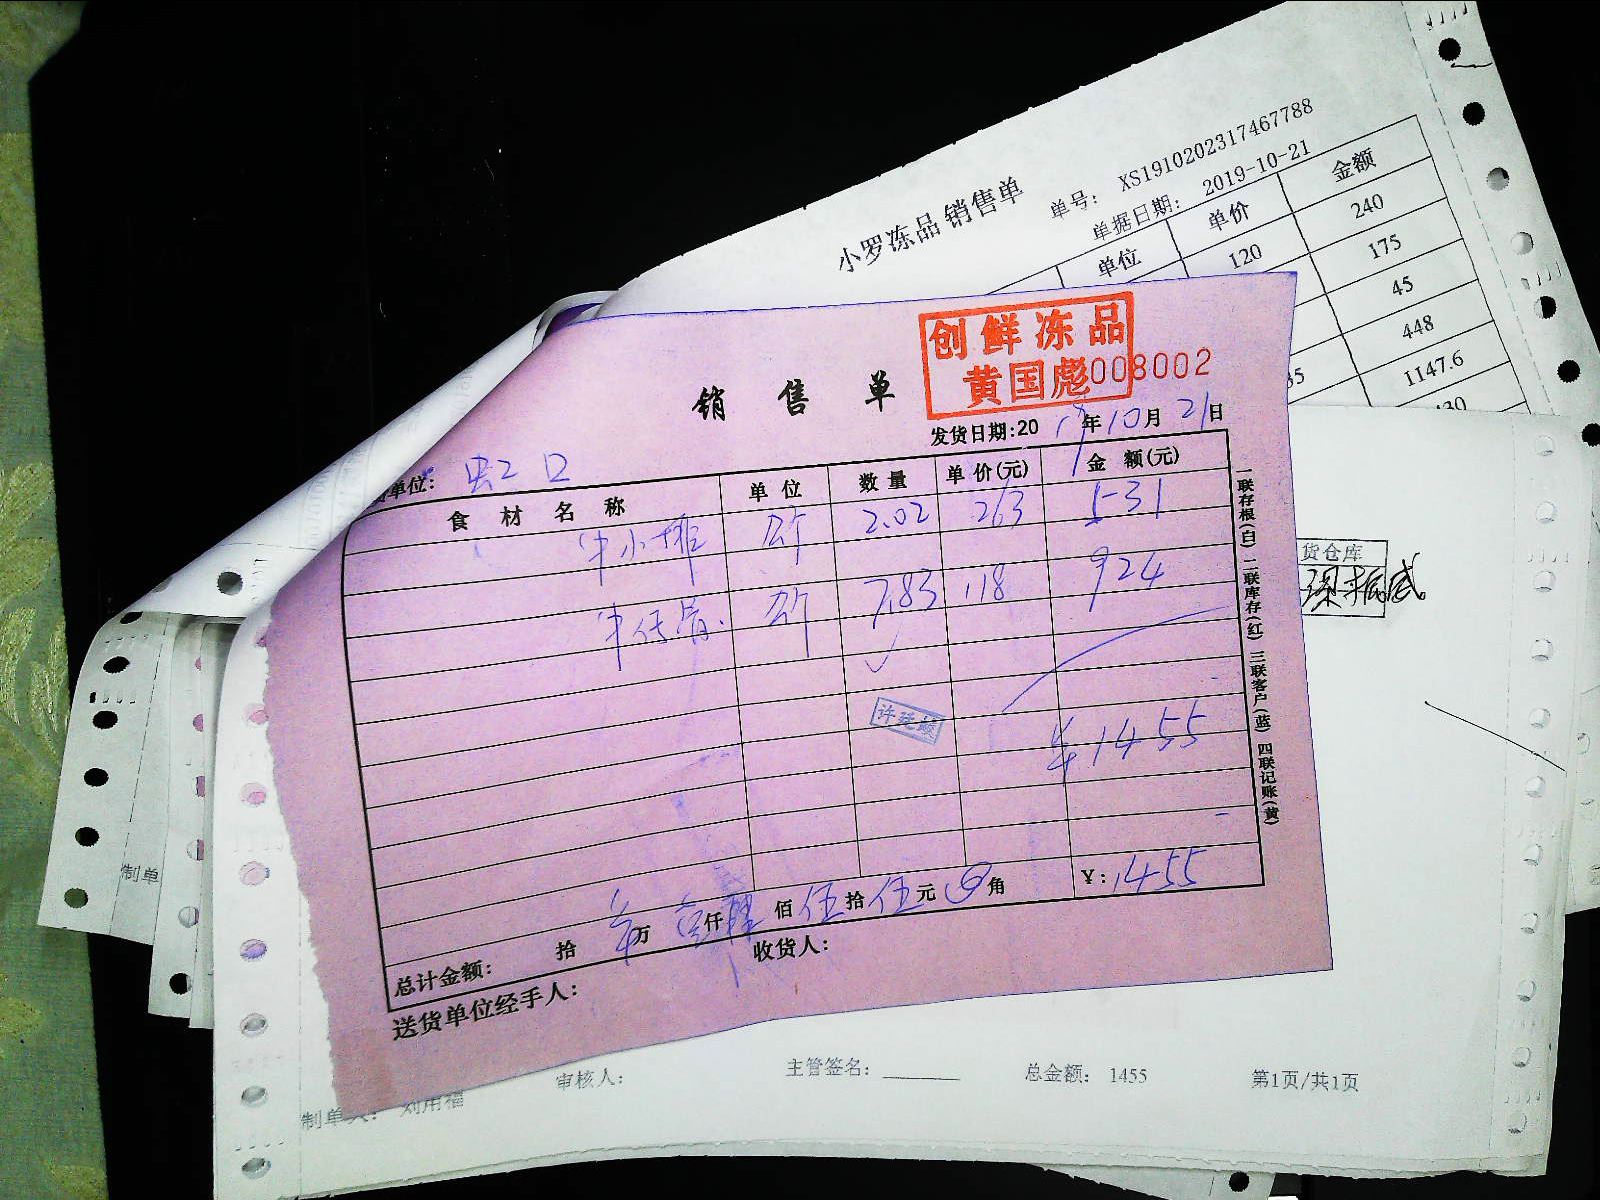 小罗冻品 销售单
单号： XS1910202317467788
单据日期： 2019-10-21
单位 单价 金额
120 240
175
45
448
1147.6
创鲜冻品
黄国彪
008002
销 售 单
发货日期:20 19 年 10 月 21 日
单位： 虹口
食 材 名 称 单 位 数 量 单 价(元) 金 额(元)
牛小排 斤 2.02 263 531
牛仔骨 斤 7.83 118 924
¥1455
总计金额： 拾 万 仟 佰 伍 拾 伍 元 角 ￥: 1455
送货单位经手人： 收货人：
一联存根(白) 二联库存(红) 三联客户(蓝) 四联记账(黄)
货仓库
制单
制单人： 刘用福 审核人： 主管签名： 总金额： 1455 第1页/共1页